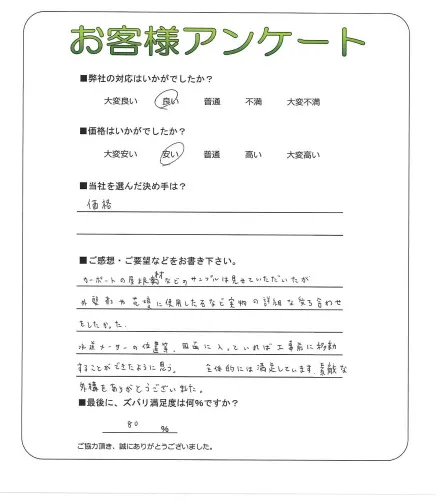 お客様アンケート
■弊社の対応はいかがでしたか？
大変良い 良い 普通 不満 大変不満
■価格はいかがでしたか？
大変安い 安い 普通 高い 大変高い
■当社を選んだ決め手は？
価格
■ご感想・ご要望などをお書き下さい。
カーポートの屋根材などのサンプルは見せていただいたが
外壁材や花壇に使用した石など実物の詳細な打ち合わせ
をしたかった。
水道メーターの位置等、図面に入っていれば工事前に移動
することができたように思う。 全体的には満足しています。素敵な
外構をありがとうございました。
■最後に、ズバリ満足度は何%ですか？
80 %
ご協力頂き、誠にありがとうございました。